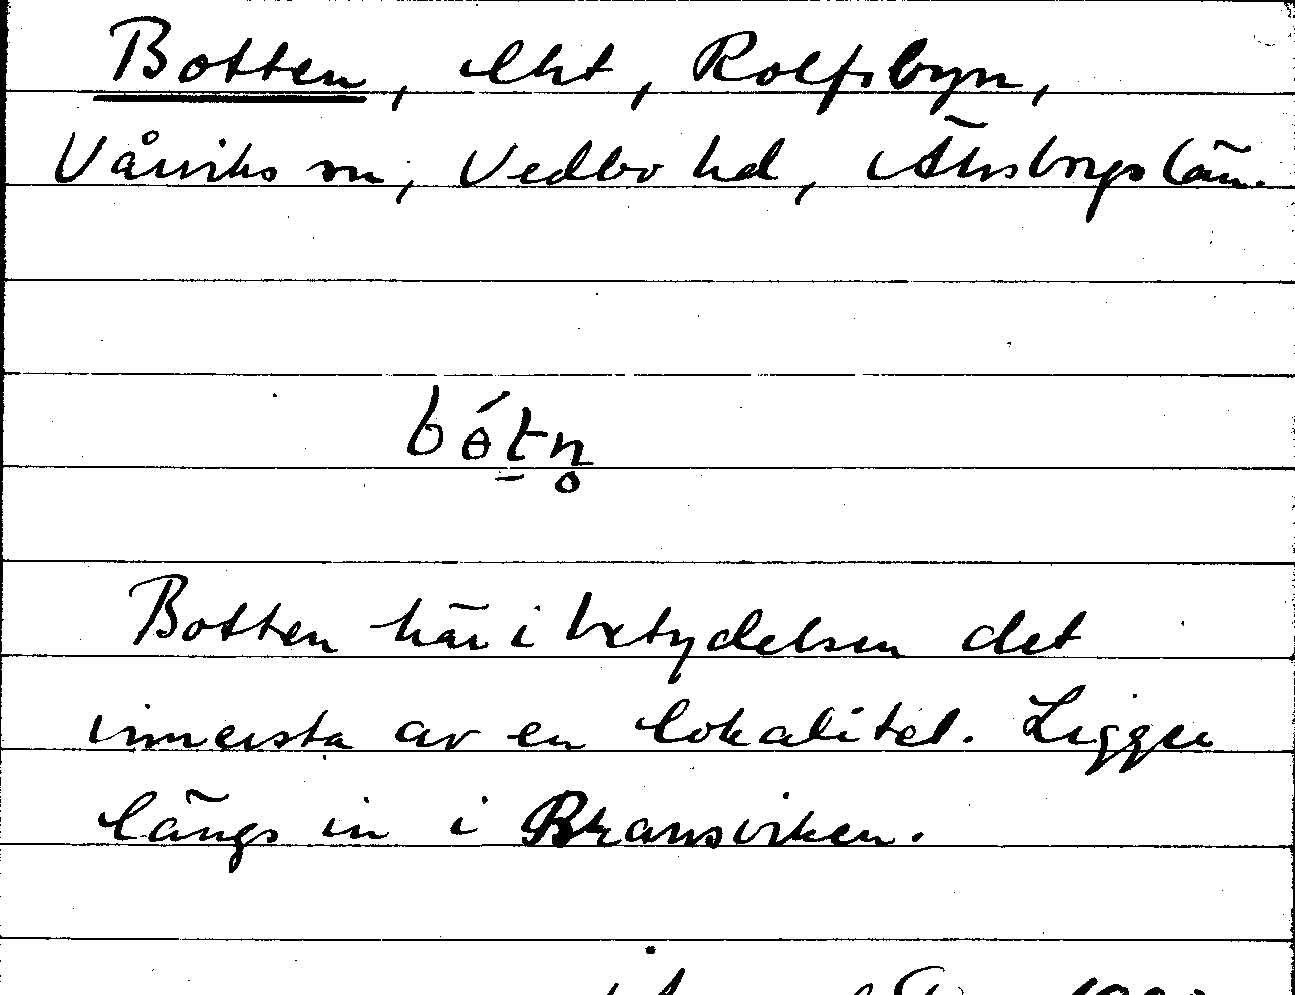 Botten, lht, Rolfsbyn,
Vårviks sn, Vedbo hd, Älvsborgs län.
bó̱tn̥
Botten här i betydelsen det
innersta av en lokalitet. Ligger
längs in i viken.